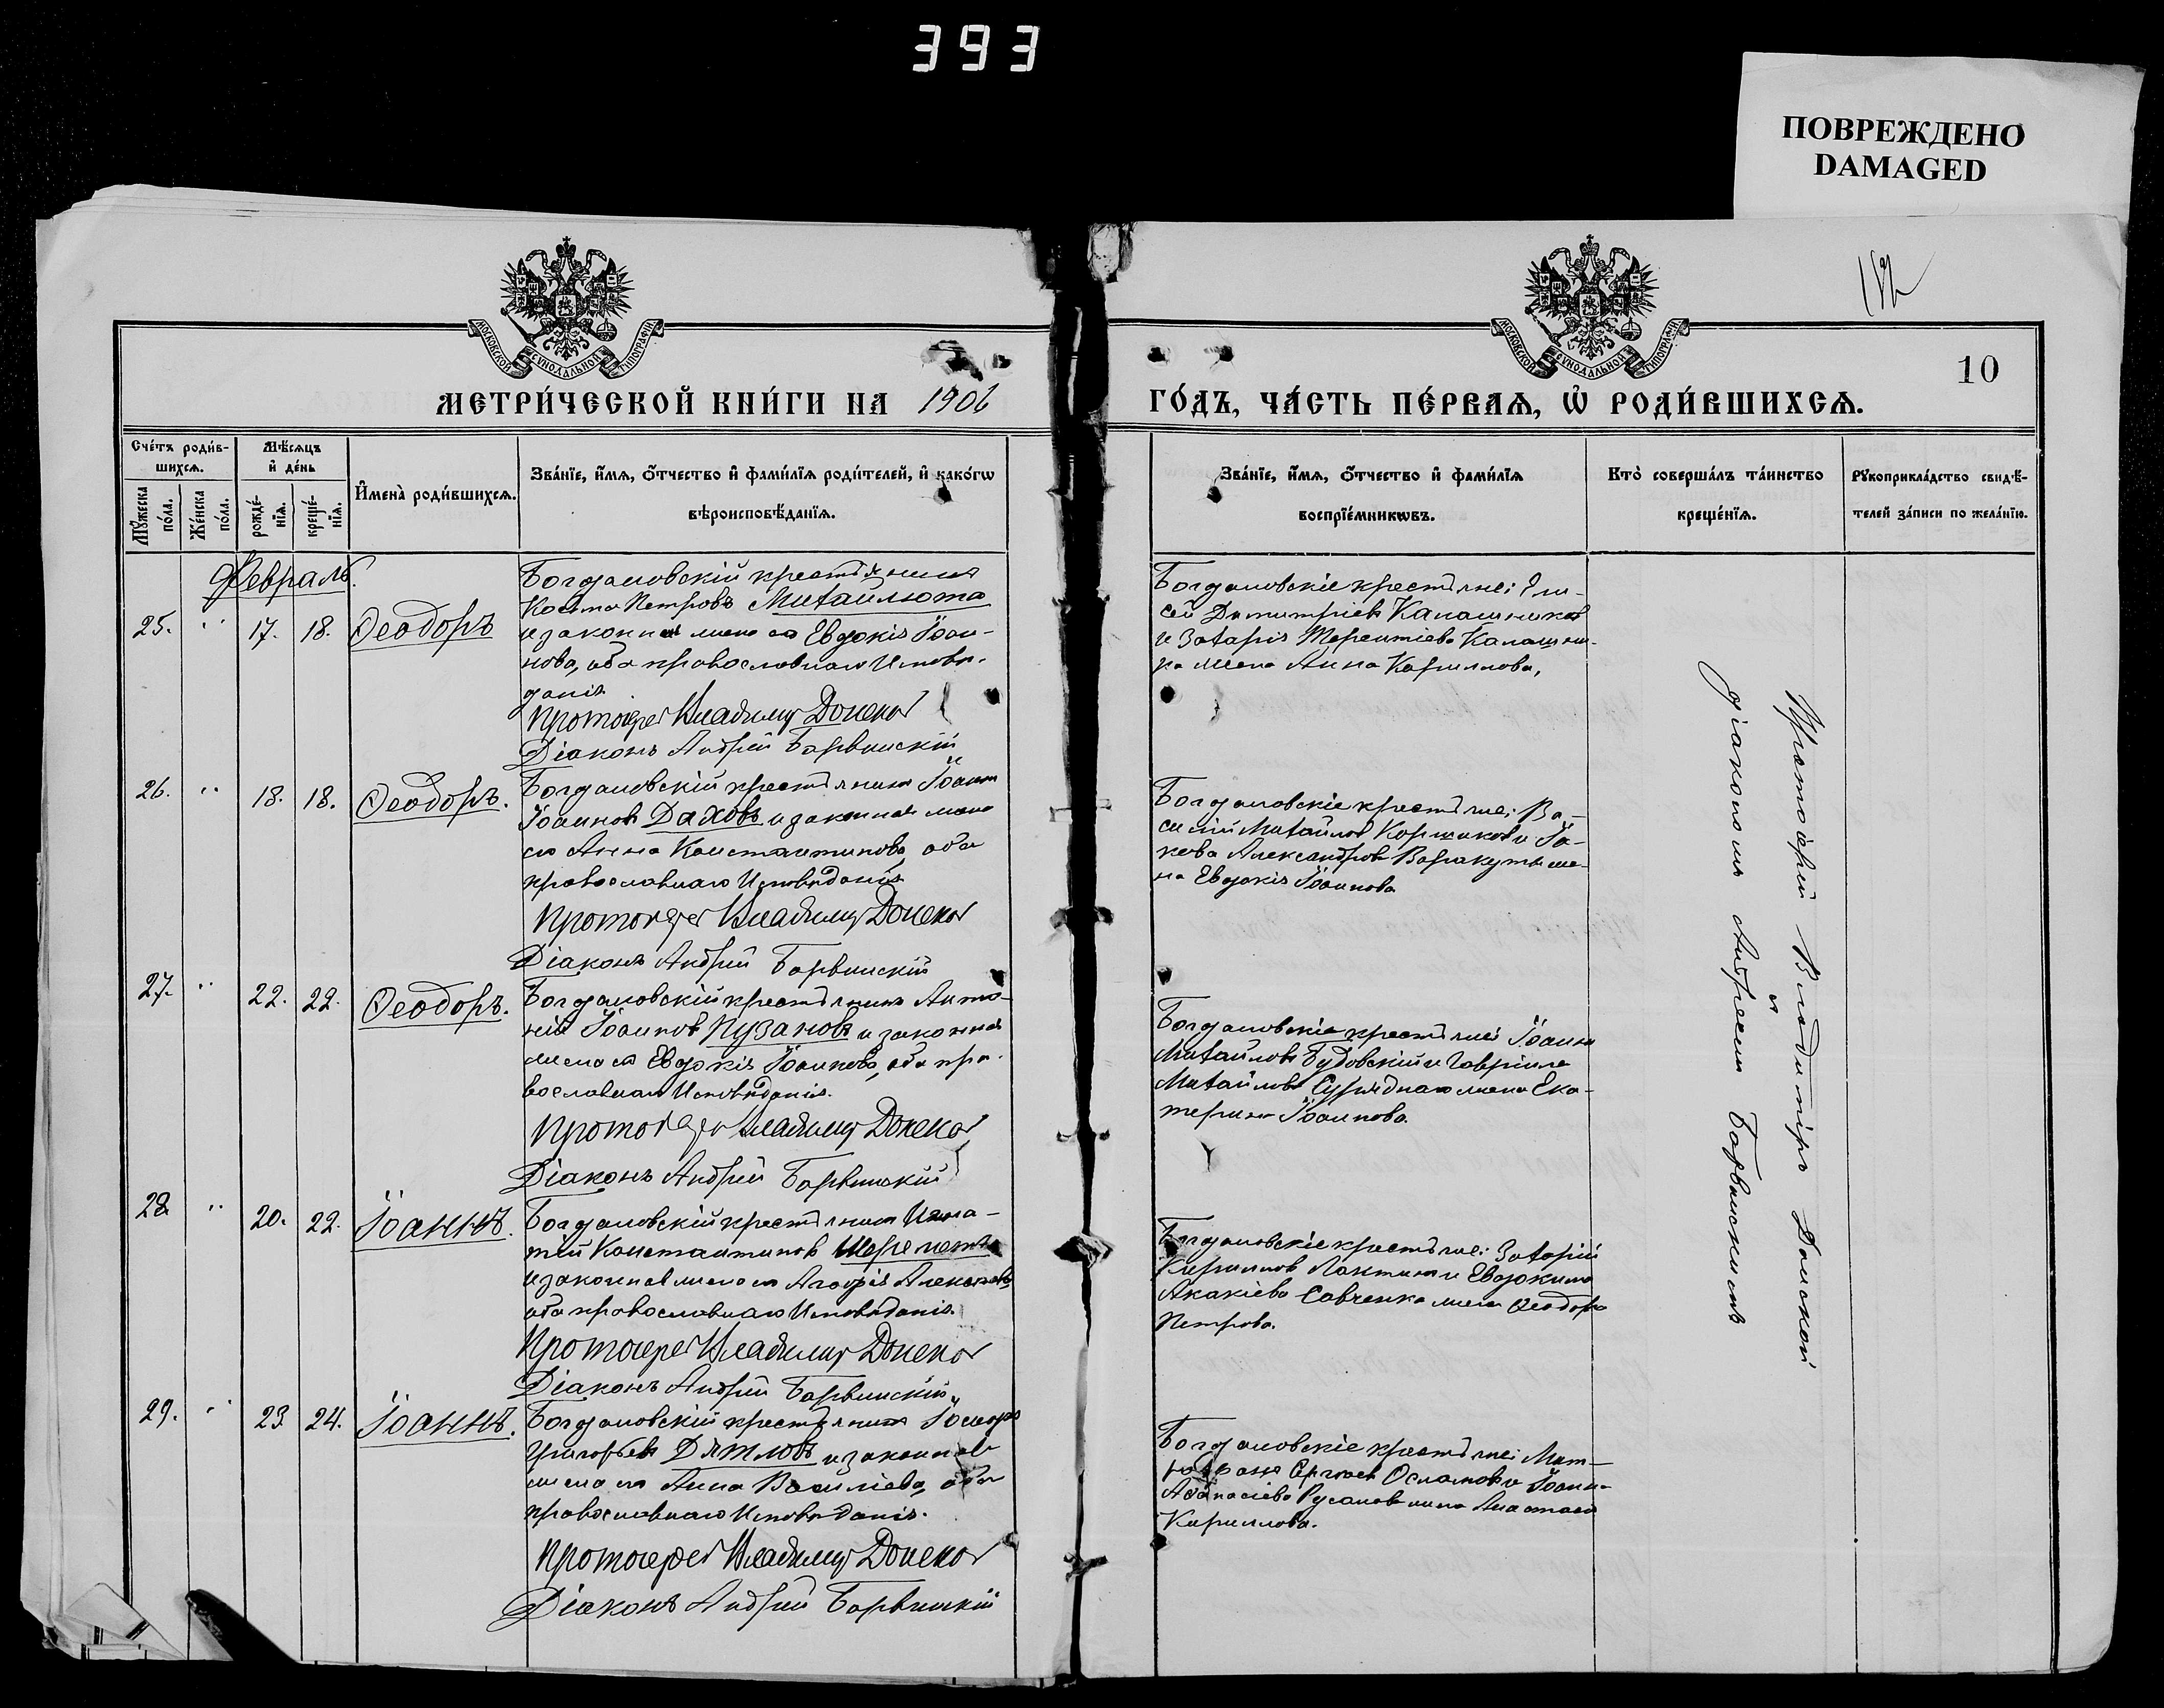 393
ПОВРЕЖДЕНО
DAMAGED
10
МОСКОВСКОЙ СѴНОДАЛЬНОЙ ТИПОГРАФІИ
МОСКОВСКОЙ СѴНОДАЛЬНОЙ ТИПОГРАФІИ
МЕТРИ́ЧЕСКОЙ КНИ́ГИ НА 1906
ГО́ДЪ, ЧА́СТЬ ПЕ́РВАѦ, Ѡ҆ РОДИ́ВШИХСѦ.
Сче́тъ роди́в-
шихсѧ.
Мꙋ́жеска по́ла.
Же́нска по́ла.
Мѣ́сѧцъ
и҆ де́нь
рожде́-
нїѧ.
креще́-
нїѧ.
И҆мена̀ роди́вшихсѧ.
Зва́нїе, и҆́мѧ, ѻ҆́тчество и҆ фами́лїѧ роди́телей, и҆ како́гѡ
вѣроисповѣ́данїѧ.
Зва́нїе, и҆́мѧ, ѻ҆́тчество и҆ фами́лїѧ
воспрїе́мникѡвъ.
Кто̀ соверша́лъ та́инство
креще́нїѧ.
Рꙋкоприкла́дство свидѣ́-
телей за́писи по жела́нїю.
Февраль.
25. " 17. 18. Ѳеодоръ
Богдановскій крестьянинъ
Косьма Петровъ Михайлюта
и законная жена его Евдокія Іоан-
нова, оба православнаго Исповѣ-
данія.
Протоіерей Владимір Донской
Діаконъ Андрей Барвинскій
Богдановскіе крестьяне: Ели-
сей Димитріевъ Калашников
и Захарія Терентіева Калашни-
ка жена Анна Кириллова,
26. " 18. 18. Ѳеодоръ.
Богдановскій крестьянинъ Іоанн
Іоанновъ Даховъ и законная жена
его Анна Константинова, оба
православнаго Исповѣданія
Протоіерей Владимір Донской
Діаконъ Андрей Барвинскій
Богдановскіе крестьяне: Ва-
силій Михайлов Коршиков и Іа-
кова Александрова Варакуты же-
на Евдокія Іоаннова
27. " 22. 22. Ѳеодоръ.
Богдановскій крестьянинъ Анто-
ній Іоаннов Пузановъ и законная
жена его Евдокія Іоаннова, оба пра-
вославнаго Исповѣданія.
Протоіерей Владимір Донской
Діаконъ Андрей Барвинскій
Богдановскіе крестьяне: Іоанн
Михайловъ Будовскій и Гавріила
Михайлова жена Ека-
терина Іоаннова.
28. " 20. 22. Іоаннъ.
Богдановскій крестьянинъ Игна-
тій Константинов Шереметъ
и законная жена его Агафія Алексѣева
оба православнаго Исповѣданія.
Протоіерей Владимір Донской
Діаконъ Андрей Барвинскій
Богдановскіе крестьяне: Захарій
Кириллов Лактин и Евдокима
Акакіева Савченка жена Ѳеодора
Петрова.
29. " 23. 24. Іоаннъ.
Богдановскій крестьянинъ Ісидор
Григорьев Дятловъ и законная
жена его Анна Василіева, оба
православнаго Исповѣданія.
Протоіерей Владимір Донской
Діаконъ Андрей Барвинскій
Богдановскіе крестьяне: Мит-
рофанъ Сергіев Осламов и Іоанна
Аѳанасіева Русанов жена Анастасія
Кириллова.
Протоіерей Владиміръ Донской
и
діакономъ Андреемъ Барвинскимъ